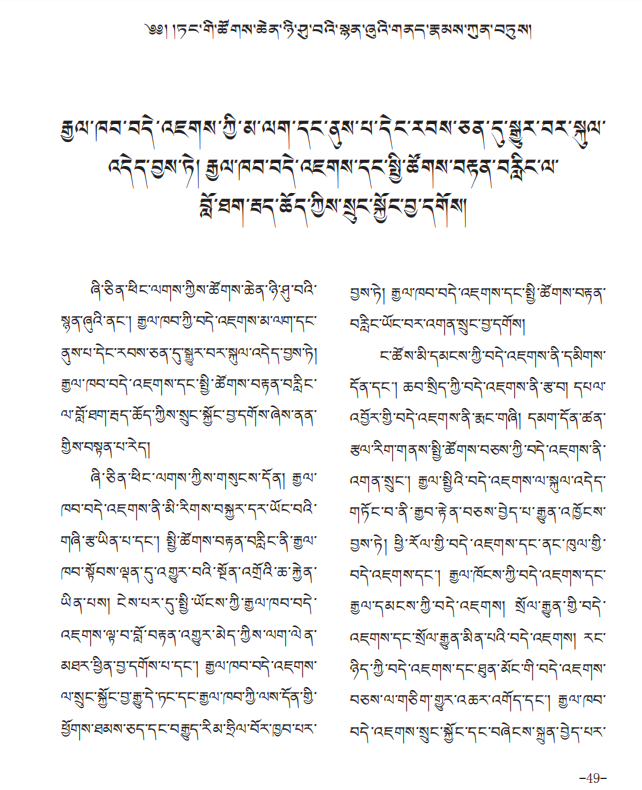 ༄༅། །ཏང་གི་ཚོགས་ཆེན་ཉི་ཤུ་བའི་སྙན་ཞུའི་གནད་རྣམས་ཀུན་བཏུས།
རྒྱལ་ཁབ་བདེ་འཇགས་ཀྱི་མ་ལག་དང་ནུས་པ་དེང་རབས་ཅན་དུ་སྒྱུར་བར་སྐུལ་
འདེད་བྱས་ཏེ། རྒྱལ་ཁབ་བདེ་འཇགས་དང་སྤྱི་ཚོགས་བརྟན་བརླིང་ལ་
བློ་ཐག་རྦད་ཆོད་ཀྱིས་སྲུང་སྐྱོང་བྱ་དགོས།
ཞི་ཅིན་ཕིང་ལགས་ཀྱིས་ཚོགས་ཆེན་ཉི་ཤུ་བའི་
སྙན་ཞུའི་ནང་། རྒྱལ་ཁབ་ཀྱི་བདེ་འཇགས་མ་ལག་དང་
ནུས་པ་དེང་རབས་ཅན་དུ་སྒྱུར་བར་སྐུལ་འདེད་བྱས་ཏེ།
རྒྱལ་ཁབ་བདེ་འཇགས་དང་སྤྱི་ཚོགས་བརྟན་བརླིང་
ལ་བློ་ཐག་རྦད་ཆོད་ཀྱིས་སྲུང་སྐྱོང་བྱ་དགོས་ཞེས་ནན་
གྱིས་བསྟན་པ་རེད།
ཞི་ཅིན་ཕིང་ལགས་ཀྱིས་གསུངས་དོན། རྒྱལ་
ཁབ་བདེ་འཇགས་ནི་མི་རིགས་བསྐྱར་དར་ཡོང་བའི་
གཞི་རྩ་ཡིན་པ་དང་། སྤྱི་ཚོགས་བརྟན་བརླིང་ནི་རྒྱལ་
ཁབ་སྟོབས་ལྡན་དུ་འགྱུར་བའི་སྔོན་འགྲོའི་ཆ་རྐྱེན་
ཡིན་པས། ངེས་པར་དུ་སྤྱི་ཡོངས་ཀྱི་རྒྱལ་ཁབ་བདེ་
འཇགས་ལྟ་བ་བློ་བརྟན་འགྱུར་མེད་ཀྱིས་ལག་ལེན་
མཐར་ཕྱིན་བྱ་དགོས་པ་དང་། རྒྱལ་ཁབ་བདེ་འཇགས་
ལ་སྲུང་སྐྱོང་བྱ་རྒྱུ་དེ་ཏང་དང་རྒྱལ་ཁབ་ཀྱི་ལས་དོན་གྱི་
ཕྱོགས་ཐམས་ཅད་དང་བརྒྱུད་རིམ་ཧྲིལ་བོར་ཁྱབ་པར་
བྱས་ཏེ། རྒྱལ་ཁབ་བདེ་འཇགས་དང་སྤྱི་ཚོགས་བརྟན་
བརླིང་ཡོང་བར་འགན་སྲུང་བྱ་དགོས།
ང་ཚོས་མི་དམངས་ཀྱི་བདེ་འཇགས་ནི་དམིགས་
དོན་དང་། ཆབ་སྲིད་ཀྱི་བདེ་འཇགས་ནི་རྩ་བ། དཔལ་
འབྱོར་གྱི་བདེ་འཇགས་ནི་རྨང་གཞི། དམག་དོན་ཚན་
རྩལ་རིག་གནས་སྤྱི་ཚོགས་བཅས་ཀྱི་བདེ་འཇགས་ནི་
འགན་སྲུང་། རྒྱལ་སྤྱིའི་བདེ་འཇགས་ལ་སྐུལ་འདེད་
གཏོང་བ་ནི་རྒྱབ་རྟེན་བཅས་བྱེད་པ་རྒྱུན་འཁྱོངས་
བྱས་ཏེ། ཕྱི་རོལ་གྱི་བདེ་འཇགས་དང་ནང་ཁུལ་གྱི་
བདེ་འཇགས་དང་། རྒྱལ་ཁོངས་ཀྱི་བདེ་འཇགས་དང་
རྒྱལ་དམངས་ཀྱི་བདེ་འཇགས། སྲོལ་རྒྱུན་གྱི་བདེ་
འཇགས་དང་སྲོལ་རྒྱུན་མིན་པའི་བདེ་འཇགས། རང་
ཉིད་ཀྱི་བདེ་འཇགས་དང་ཐུན་མོང་གི་བདེ་འཇགས་
བཅས་ལ་གཅིག་གྱུར་འཆར་འགོད་དང་། རྒྱལ་ཁབ་
བདེ་འཇགས་སྲུང་སྐྱོང་དང་བཞེངས་སྐྲུན་བྱེད་པར་
-49-